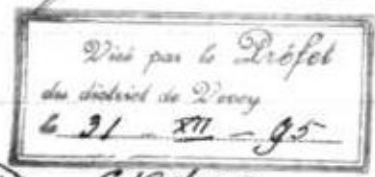 Visé par le Préfet
du district de Vevey
le 31 - XII - 95